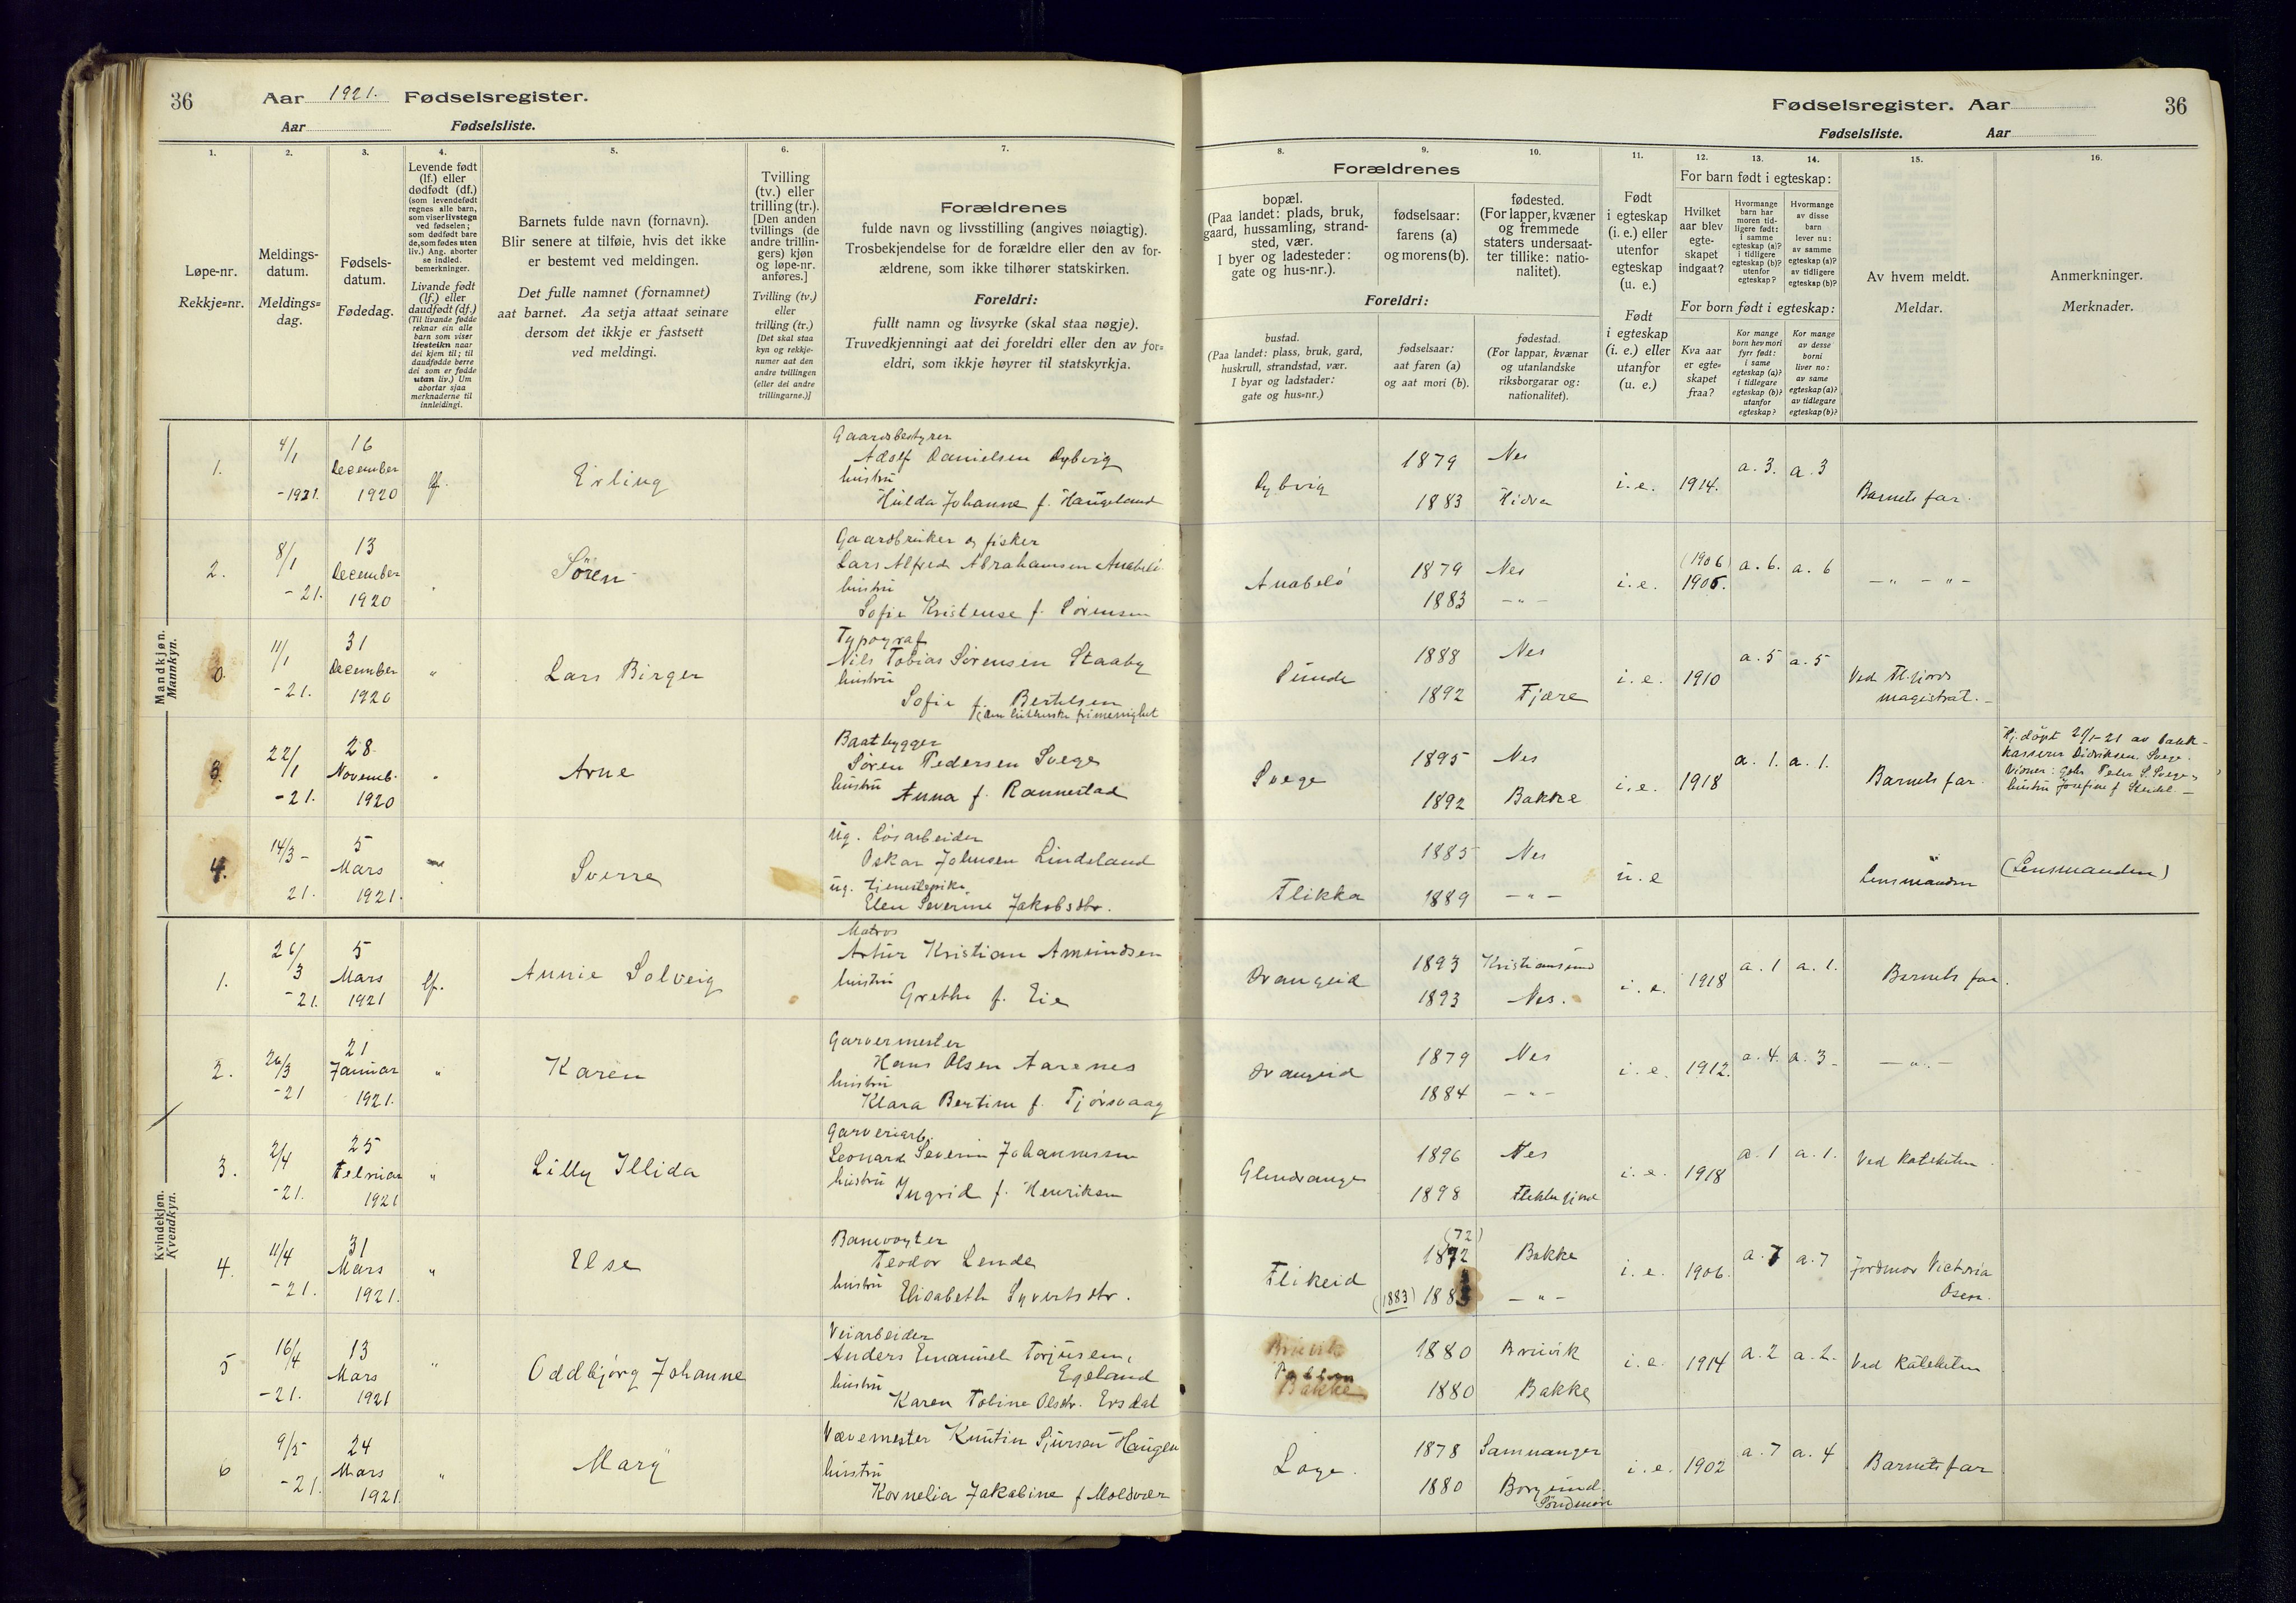 36
Aar 1921. Fødselsregister.
Aar Fødselsliste.
1.
Løpe-nr.
Rekkje=nr.
2.
Meldings-
datum.
Meldings=
dag.
3.
Fødsels-
datum.
Fødedag.
4.
Levende født
(lf.) eller
dødfødt (df.)
(som levendefødt
regnes alle barn,
som viser livstegn
ved fødselen;
som dødfødt bare
de, som fødes uten
liv.) Ang. aborter
se indled.
bemerkninger.
Livande født
(lf.) eller
daudfødt (df.)
(Til livande fødde
reknar ein alle
barn som viser
livsteikn naar
dei kjem til; til
daudfødde berre
dei som er fødde
utan liv.) Um
abortar sjaa
merknaderne til
innleidingi.
5.
Barnets fulde navn (fornavn).
Blir senere at tilføie, hvis det ikke
er bestemt ved meldingen.
Det fulle namnet (fornamnet)
aat barnet. Aa setja attaat seinare
dersom det ikkje er fastsett
ved meldingi.
6.
Tvilling
(tv.) eller
trilling (tr.).
[Den anden
tvillings (de
andre trillin-
gers) kjøn
og løpe-nr.
anføres.]
Tvilling (tv.)
eller
trilling (tr.)
[Det skal staa
kyn og rekkje-
numer aat den
andre tvillingen
(eller dei andre
trillingarne.)]
7.
Forældrenes
fulde navn og livsstilling (angives nøiagtig).
Trosbekjendelse for de forældre eller den av for-
ældrene, som ikke tilhører statskirken.
Foreldri:
fullt namn og livsyrke (skal staa nøgje).
Truvedkjenningi aat dei foreldri eller den av for=
eldri, som ikkje høyrer til statskyrkja.
Fødselsregister. Aar
36
Fødselsliste. Aar
Forældrenes
8.
bopæl.
(Paa landet: plads, bruk,
gaard, hussamling, strand-
sted, vær.
I byer og ladesteder:
gate og hus-nr.).
9.
fødselsaar:
farens (a)
og morens (b).
10.
fødested.
(For lapper, kvæner
og fremmede
staters undersaat-
ter tillike: natio-
nalitet).
Foreldri:
bustad.
(Paa landet: plass, bruk, gard,
huskrull, strandstad, vær.
I byar og ladstader:
gate og hus=nr.)
fødselsaar:
aat faren (a)
og aat mori (b).
fødestad.
(For lappar, kvænar
og utanlandske
riksborgarar og:
nationalitet).
11.
Født
i egteskap
(i. e.) eller
utenfor
egteskap
(u. e.)
Født
i egteskap
(i. e.) eller
utanfor
(u. e.)
12. 13. 14.
For barn født i egteskap:
Hvilket
aar blev
egte-
skapet
indgaat?
Hvormange
barn har
moren tid-
ligere født:
i samme
egteskap (a)?
i tidligere
egteskap (b)?
utenfor
egteskap?
Hvormange
av disse
barn
lever nu:
av samme
egteskap (a)?
av tidligere
egteskap (b)?
For born født i egteskap:
Kva aar
er egte=
skapet
fraa?
Kor mange
born hev mori
fyrr født:
i same
egteskap (a)?
i tidlegare
egteskap (b)?
utanfor
egteskap?
Kor mange
av desse
borni
liver no:
av same
egteskap (a)?
av tidlegare
egteskap (b)?
15.
Av hvem meldt.
Meldar.
16.
Anmerkninger.
Merknader.
Mandkjøn.
Mannkyn.
1. 4/1 -1921. 16 December 1920 lf. Erling
Gaardsbestyrer
Adolf Danielsen Dybvig
hustru
Hulda Johanne f. Haugeland
Dybvig 1879 Nes i.e. 1914. a. 3. a. 3 Barnets far.
1883 Hidra
2. 8/1 -21. 13 December 1920 " Sören
Gaardbruker og fisker
Lars Alfred Abrahamsen Anabelö
hustru
Sofie Kristense f. Sörensen
Anabelö 1879 Nes i.e. (1906) 1906. a. 6. a. 6 — " — " —
1883 — " —
0. 11/1 -21. 31 December 1920 " Lars Birger
Typograf
Nils Tobias Sörensen Staaby
hustru
Sofie f. Bertelsen
Sunde 1888 Nes i.e. 1910 a. 5 a. 5 Ved Fl.fjords
1892 Fjære magistrat. —
3. 22/1 -21. 28. Novemb. 1920 " Arne
Baatbygger
Sören Pedersen Svege
hustru Anna f. Rannestad
Svege 1895 Nes i.e. 1918 a. 1. a. 1. Barnets far.
1892 Bakke
Hj.döpt 2/1-21 av bank-
kasserer Didriksen, Svege.
Vidner: gbr. Peder S. Svege,
hustru Josefine f.
4. 14/3 - 21. 5 Mars 1921. Sverre
Ug. Lösarbeider
Oskar Johnsen Lindeland
ug. tjenestepike
Elen Severine Jakobsdtr.
Flikka 1885 Nes u.e Lensmanden (Lensmanden)
1889 — " —
Kvindekjøn.
Kvendkyn.
1. 26/3 -21. 5 Mars 1921 lf. Annie Solveig
Matros
Artur Kristian Amundsen
hustru
Grethe f. Eie
Drangeid 1893 Kristiansund i. e. 1918 a. 1 a. 1. Barnets far.
1893 Nes.
2. 26/3 -21 21 Januar 1921. " Karen
Garvermester
Hans Olsen Aarenes
hustru
Klara Bertine f. Tjörsvaag
Drangeid 1879 Nes i. e. 1912. a. 4. a. 3 - — " —
1884 — " —
3. 2/4 -21. 25 Februar 1921 " Lilly Illida
Garveriarb.
Leonard Severin Johannessen
hustru Ingrid f. Henriksen
Glendrange 1896 Nes i. e. 1918 a. 1 a. 1. Ved kateketen
1898 Flekkefjord
4. 11/4 -21. 31 Mars 1921. " Else
Banevogter
Teodor Lende
hustru Elisabeth Syvertsdtr.
Flikeid (72) 1872 Bakke i. e. 1906. a. 7 a. 7 Jordmor Victoria
(1883) 1883 — " — Osen.
5 16/4 -21. 13 Mars 1921 " Oddbjörg Johanne
Veiarbeider
Anders Emanuel Torjusen,
Egeland
hustru
Karen Tobine Olsdtr. Ersdal
Bruvik
Bakke
1880 Bruvik i. e. 1914 a. 2 a. 2. Ved kateketen
1880 Bakke
6 9/5 -21. 24 Mars 1921. " Mary
Vævemester Knutin Sjursen Haugen
hustru
Kornelia Jakobine f Moldvær
Loge. 1878 Samnanger i. e. 1902 a. 7 a. 4 Barnets far
1880 Borgund.
Söndmöre